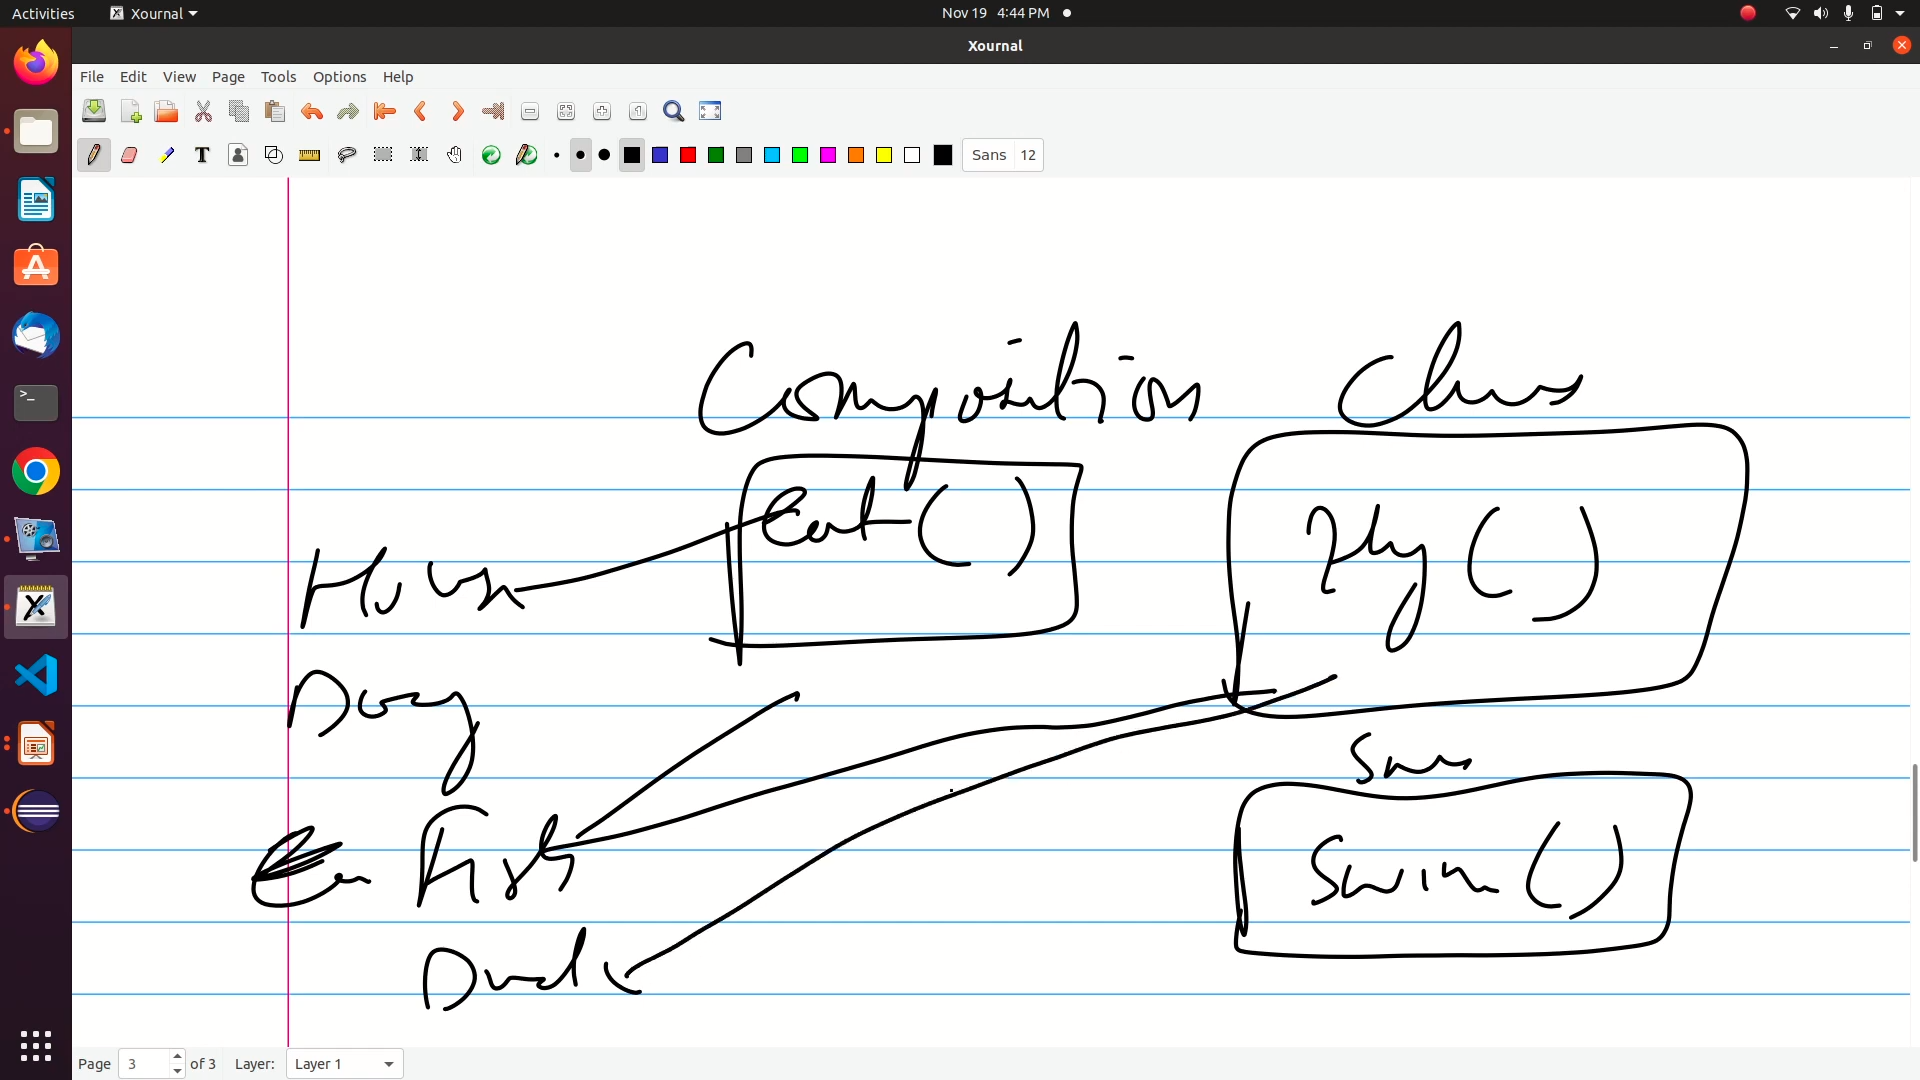 Activities Xournal Nov 19 4:44 PM
Xournal
File Edit View Page Tools Options Help
Sans 12
Composition Class
Eat ( )
Fly ( )
Horse
Dog
Swim ( )
Fish
Duck
Page 3 of 3 Layer: Layer 1